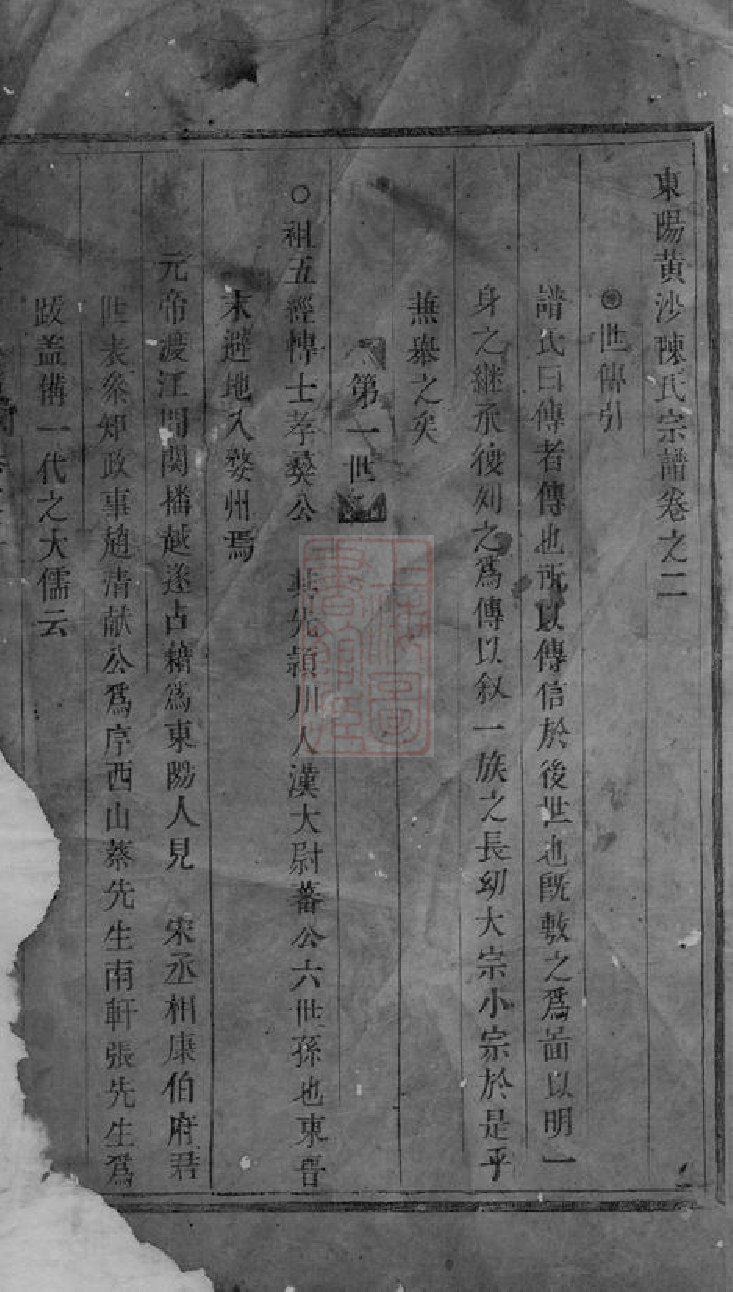 東陽黃沙陳氏宗譜卷之二
世傳引
譜氏曰傳者傳也所以傳信於後世也旣敷之爲啚以明一
身之繼承復列之爲傳以叙一族之長幼大宗小宗於是乎
燕舉之矣
第一世
○祖五經愽士孝燊公 其先潁川人漢大尉蕃公六世孫也東晋
末避地入婺州焉
元帝渡江間関播越遂占籍爲東陽人見 宋丞相康伯府君
世表叅知政事趙清献公爲序西山蔡先生南軒張先生爲
跋盖僃一代之大儒云
上海圖書館藏